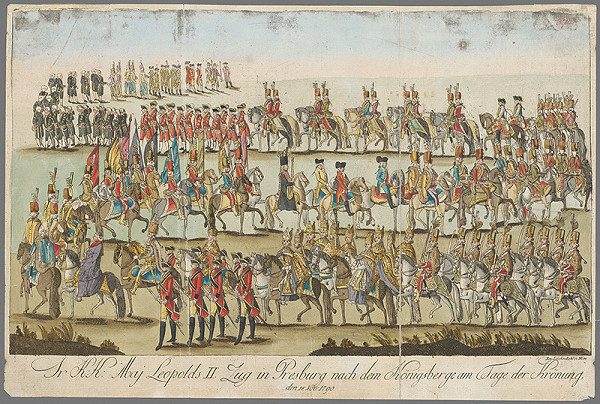 Sr K.K. Maj Leopolds II. Zug in Presburg nach dem Königsberge am Tage der Krönung.
den 15 Nov. 1790